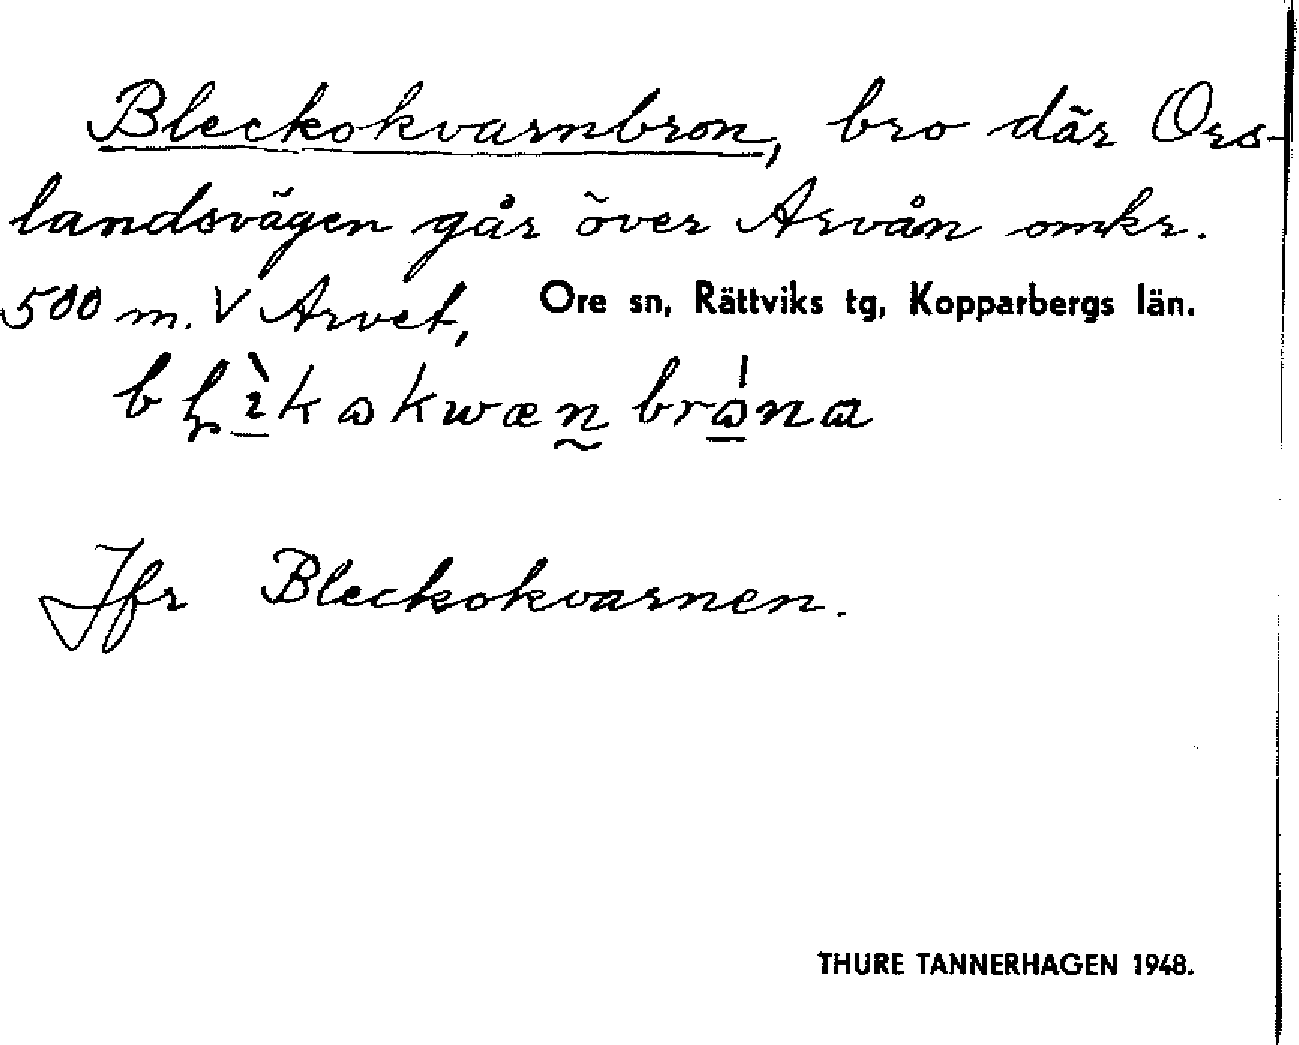 Bleckokvarnbron, bro där Ors-
landsvägen går över Arvån omkr.
500 m. V Arvet,
Ore sn, Rättviks tg, Kopparbergs län.
Jfr Bleckokvarnen.
THURE TANNERHAGEN 1948.